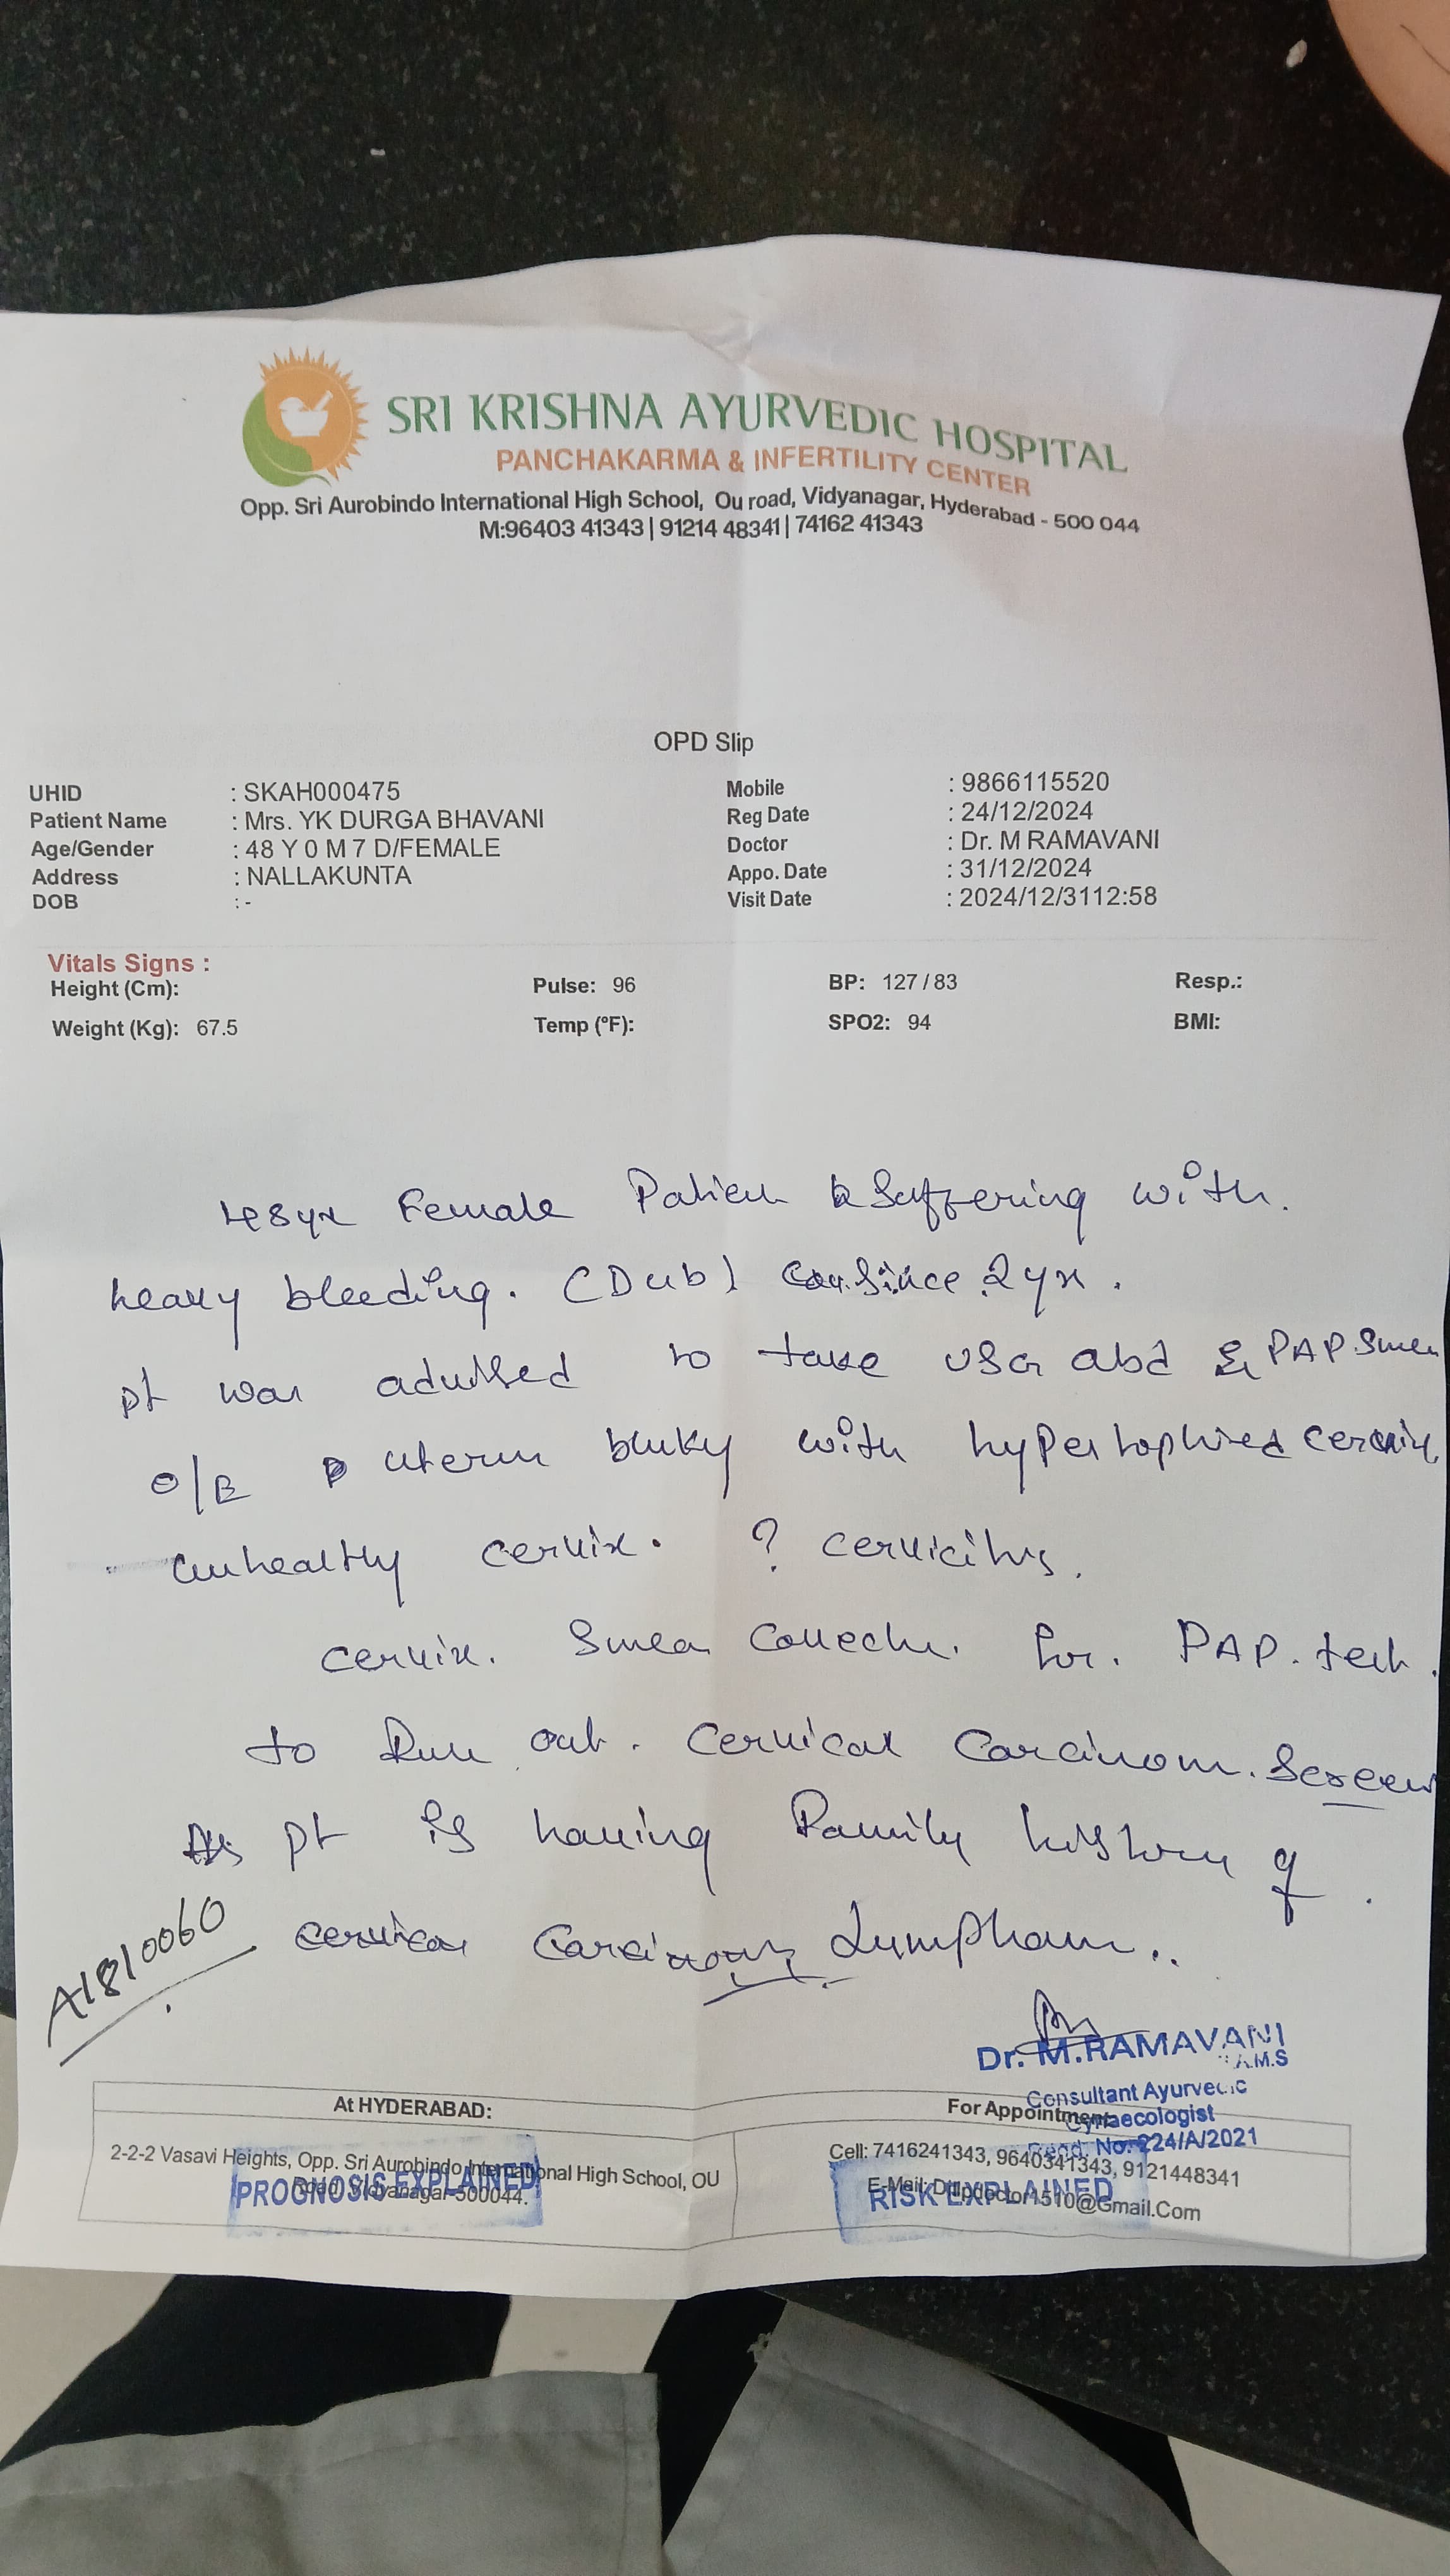 SRI KRISHNA AYURVEDIC HOSPITAL
PANCHAKARMA & INFERTILITY CENTER
Opp. Sri Aurobindo International High School, Ou road, Vidyanagar, Hyderabad - 500 044
M:96403 41343 | 91214 48341 | 74162 41343
OPD Slip
UHID : SKAH000475 Mobile : 9866115520
Patient Name : Mrs. YK DURGA BHAVANI Reg Date : 24/12/2024
Age/Gender : 48 Y 0 M 7 D/FEMALE Doctor : Dr. M RAMAVANI
Address : NALLAKUNTA Appo. Date : 31/12/2024
DOB : - Visit Date : 2024/12/3112:58
Vitals Signs :
Height (Cm): Pulse: 96 BP: 127 / 83 Resp.:
Weight (Kg): 67.5 Temp (°F): SPO2: 94 BMI:
48yr Female Patien suffering with.
heavy bleeding. (Dub) since 2yr.
pt was to take USG abd & PAP Smea
O/E uterus bluky with hypertophied cervix
unhealthy cervix. ? cervicitis.
cervix. Smea Collectn. for. PAP. test.
to Rule out. cervical Carcinom. Screen
As pt is having Family history of.
cervical Carcinoma Lymphom..
A1810060
Dr. M.RAMAVANI
A.M.S
Consultant Ayurvedic
Gynaecologist
Regd. No: 224/A/2021
At HYDERABAD: For Appointment
2-2-2 Vasavi Heights, Opp. Sri Aurobindo International High School, OU
Road, Vidyanagar-500044.
Cell: 7416241343, 9640341343, 9121448341
E-Mail: Dilipdoctor1510@Gmail.Com
PROGNOSIS EXPLAINED
RISK EXPLAINED